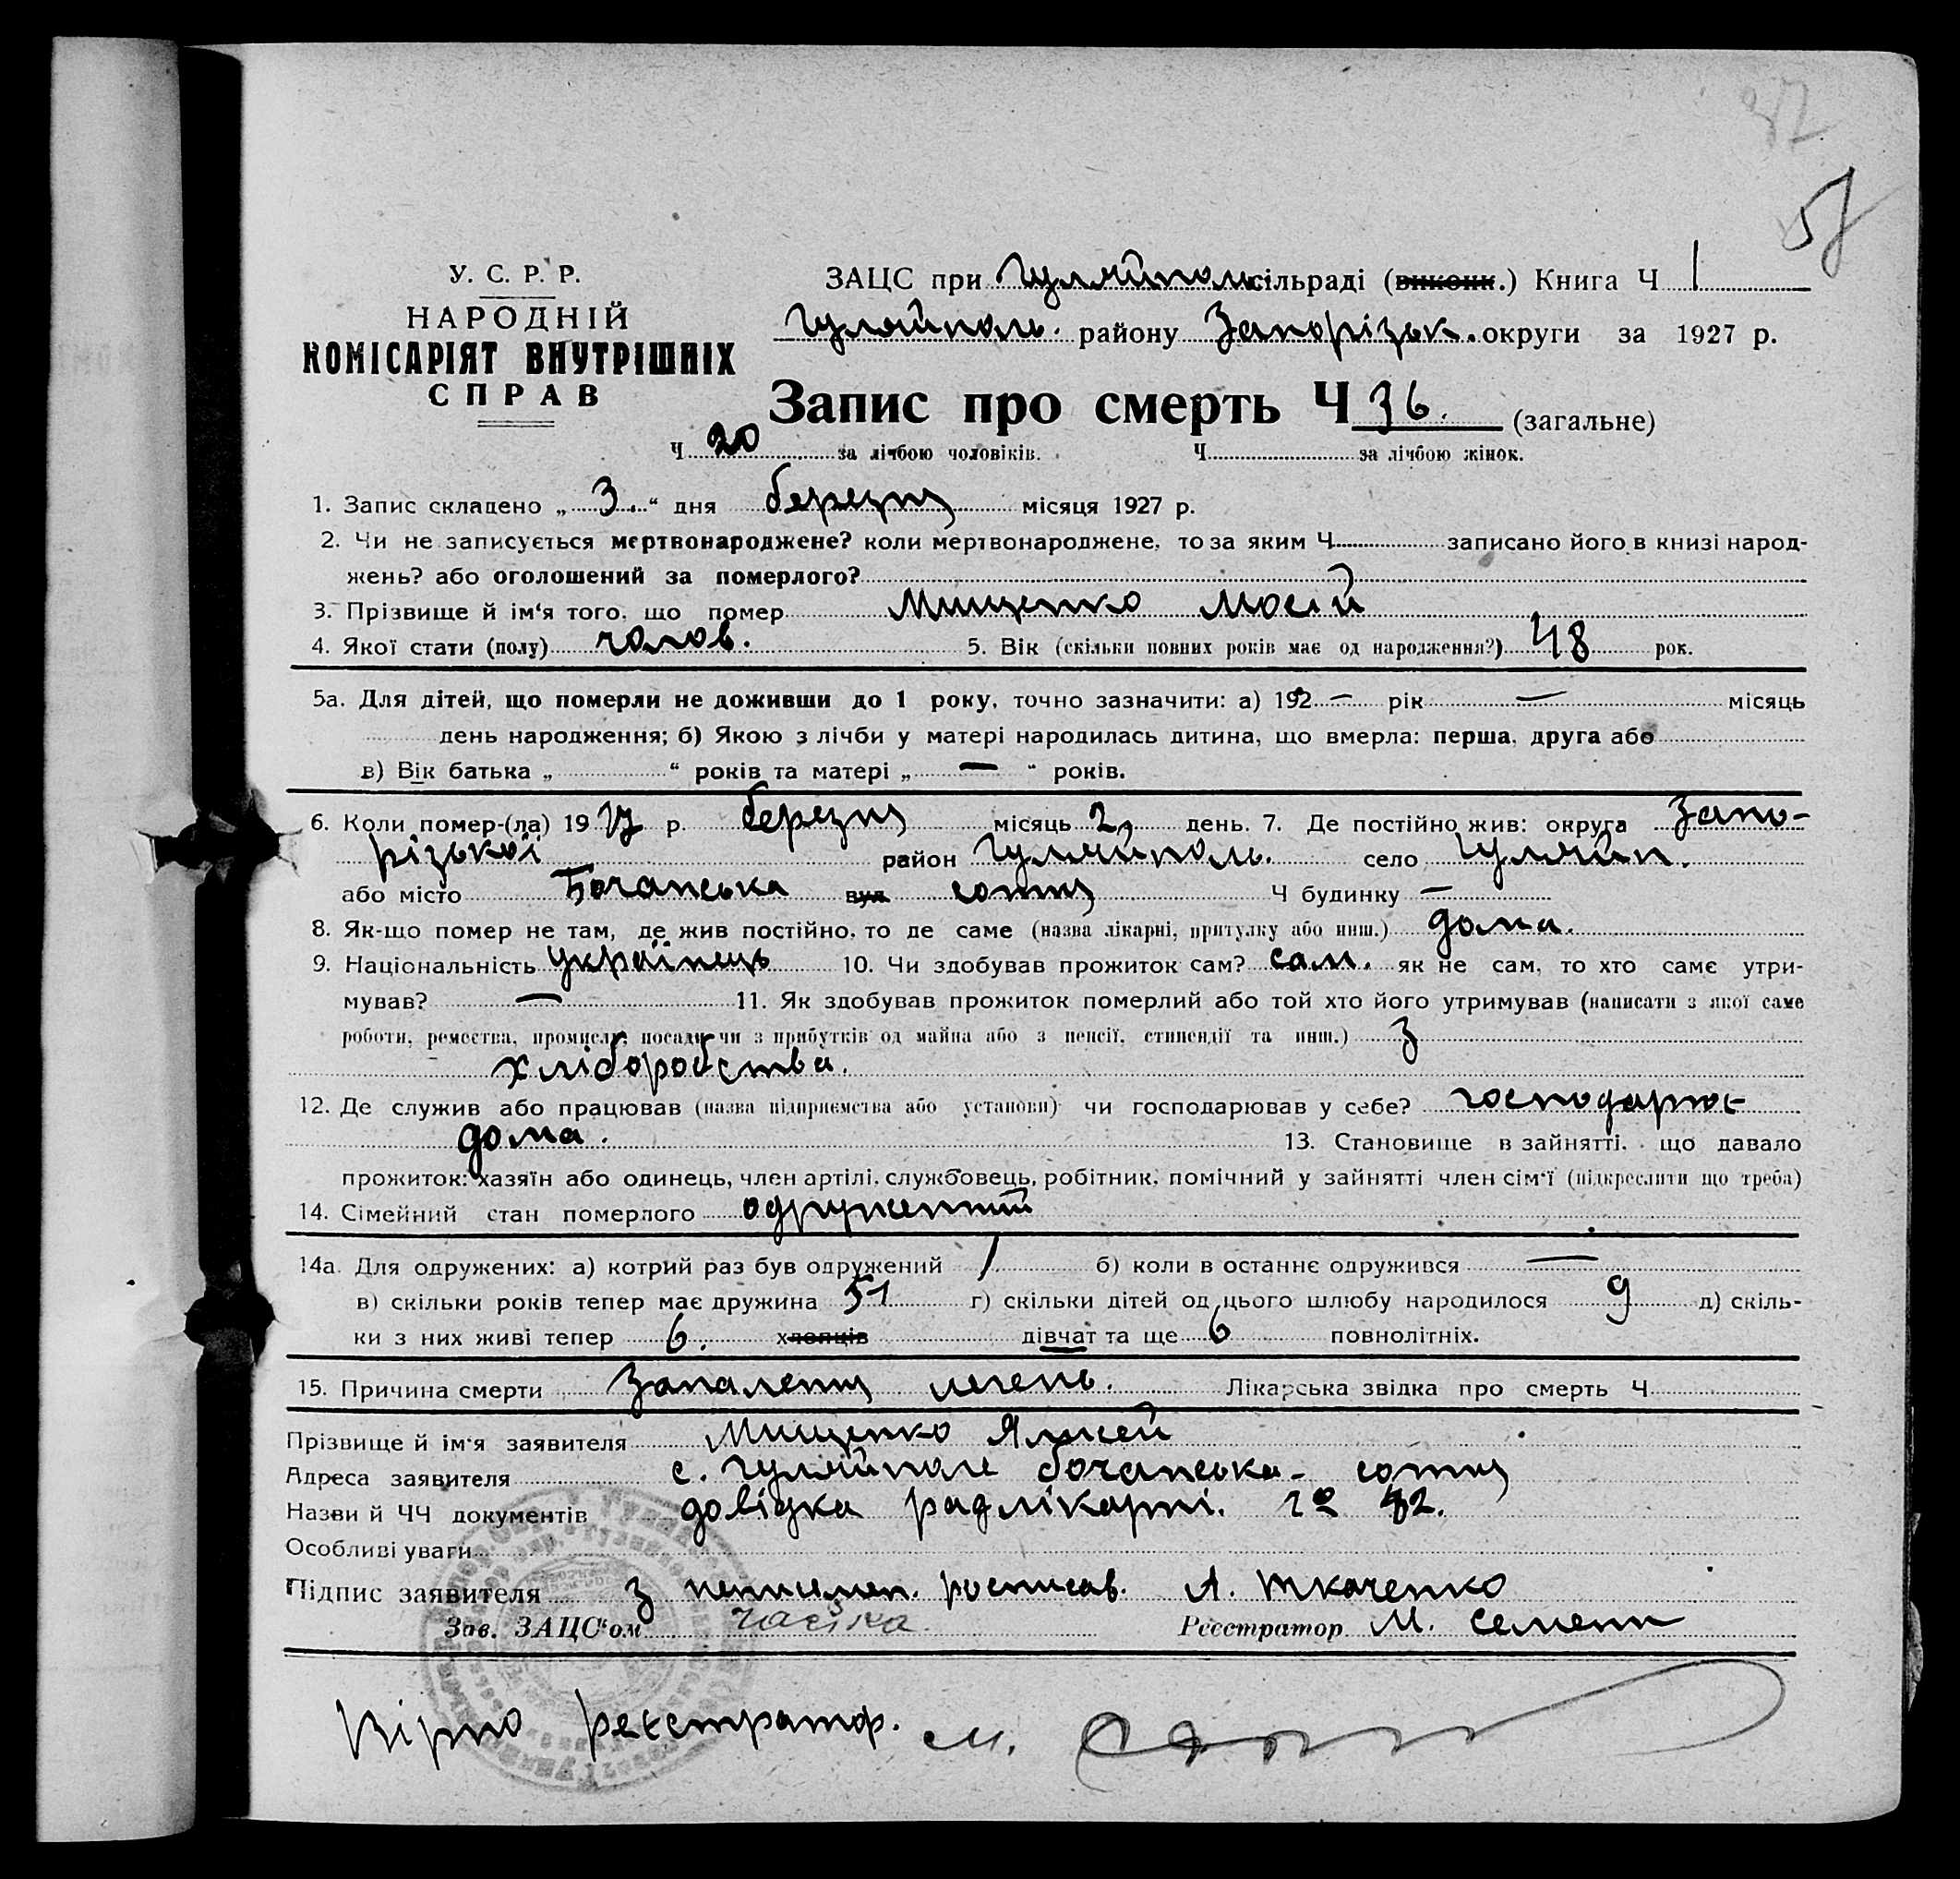 57
У. С. Р. Р.
НАРОДНІЙ
КОМІСАРІЯТ ВНУТРІШНІХ
СПРАВ
ЗАЦС при Гуляйпол. сільраді (виконк.) Книга Ч 1
Гуляйполь. району Запорізьк. округи за 1927 р.
Запис про смерть Ч 36. (загальне)
Ч 20 за лічбою чоловіків. Ч за лічбою жінок.
1. Запис складено „ 3. “ дня березня місяця 1927 р.
2. Чи не записується мертвонароджене? коли мертвонароджене, то за яким Ч записано його в книзі народ-
жень? або оголошений за померлого?
3. Прізвище й ім‘я того, що помер Мищенко Мосій
4. Якої стати (полу) чолов. 5. Вік (скільки повних років має од народження?) 48 рок.
5а. Для дітей, що померли не доживши до 1 року, точно зазначити: а) 192 — рік — місяць
день народження; б) Якою з лічби у матері народилась дитина, що вмерла: перша, друга або
в) Вік батька „ “ років та матері „ — “ років.
6. Коли помер-(ла) 19 27 р. березня місяць 2 день. 7. Де постійно жив: округа Запо-
різької район Гуляйполь. село Гуляйп.
або місто Бочанська вул сотня Ч будинку —
8. Як-що помер не там, де жив постійно, то де саме (назва лікарні, притулку або инш.) дома.
9. Національність українець 10. Чи здобував прожиток сам? сам. як не сам, то хто саме утри-
мував? — 11. Як здобував прожиток померлий або той хто його утримував (написати з якої саме
роботи, ремества, промислу, посади чи з прибутків од майна або з пенсії, стипендії та инш.) з
хліборобства.
12. Де служив або працював (назва підприємства або установи) чи господарював у себе? господарює
дома. 13. Становище в зайнятті, що давало
прожиток: хазяїн або одинець, член артілі, службовець, робітник, помічний у зайнятті член сім‘ї (підкреслити що треба)
14. Сімейний стан померлого одружений
14а. Для одружених: а) котрий раз був одружений 1 б) коли в останнє одружився —
в) скільки років тепер має дружина 51 г) скільки дітей од цього шлюбу народилося 9 д) скіль-
ки з них живі тепер 6. хлопців дівчат та ще 6 повнолітніх.
15. Причина смерти Запалення легень. Лікарська звідка про смерть Ч
Прізвище й ім‘я заявителя Мищенко
Адреса заявителя с. Гуляйполе бочанська сотня
Назви й ЧЧ документів довідка радлікарні.
Особливі уваги
Підпис заявителя з неписьмен. росписав. А. Ткаченко
Зав. ЗАЦС‘ом Реєстратор М. Семен
Вірно реєстратор. М.